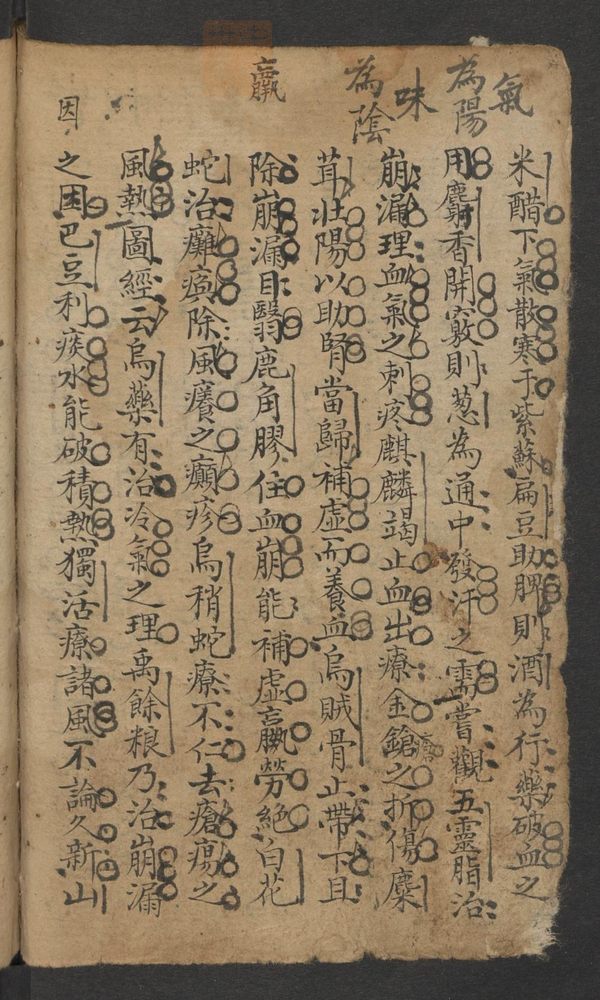 氣為陽
味為陰
羸
因
米醋下氣散寒于紫蘇扁豆助脾則酒為行藥破血之
用麝香開竅則葱為通中發汗之需嘗觀五靈脂治
崩漏理血氣之刺疼麒麟竭止血出療金鎗之折傷麋
瘡
茸壯陽以助腎當歸補虛而養血烏賊骨止帶下且
除崩漏目翳鹿角膠住血崩能補虛羸勞絕白花
蛇治癱瘓除風癢之癲疹烏稍蛇療不仁去瘡瘍之
風熱圖經云烏藥有治冷氣之理禹餘粮乃治崩漏
之困巴豆利痰水能破積熱獨活療諸風不論久新山